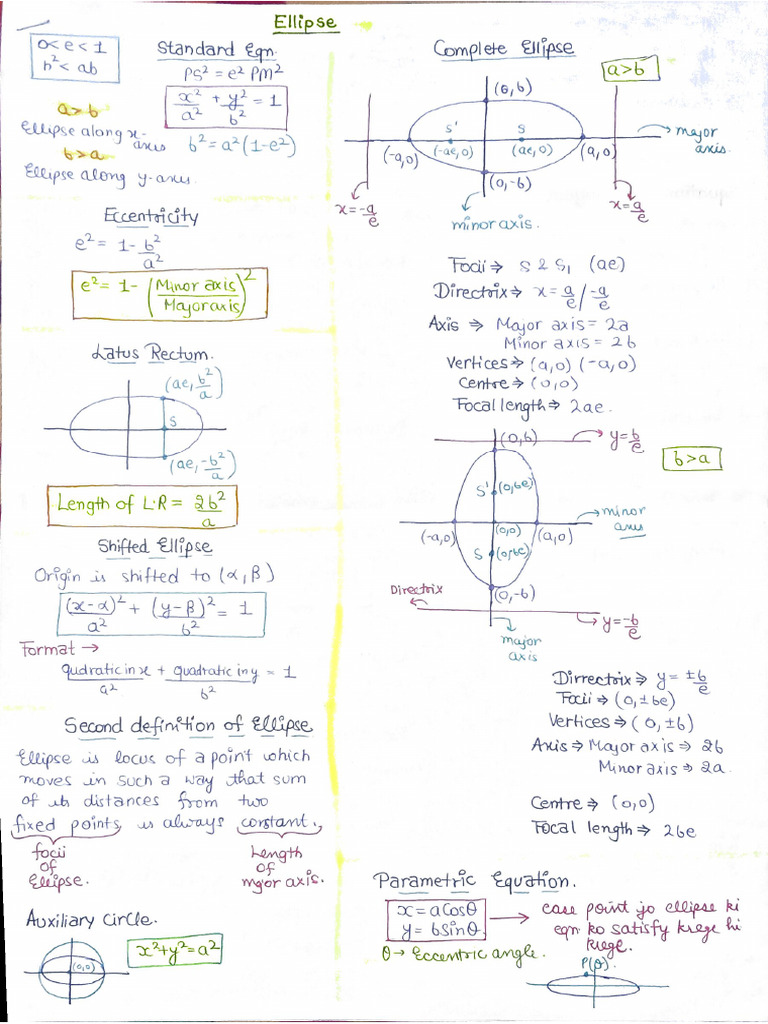 Ellipse
0<e<1
h²<ab
Standard Eqn.
PS² = e² PM²
x²/a² + y²/b² = 1
b² = a²(1-e²)
a>b
Ellipse along x-axis
b>a
Ellipse along y-axis
Eccentricity
e² = 1- b²/a²
e² = 1- (Minor axis/Major axis)²
Latus Rectum.
(ae, b²/a)
S
(ae, -b²/a)
Length of L·R = 2b²/a
Shifted Ellipse
Origin is shifted to (α, β)
(x-α)²/a² + (y-β)²/b² = 1
Format →
qudratic in x/a² + quadratic in y/b² = 1
Second definition of Ellipse
Ellipse is locus of a point which
moves in such a way that sum
of its distances from two
fixed points, is always constant.
focii
of
Ellipse.
Length
of
major axis.
Auxiliary Circle.
(0,0)
x²+y²=a²
Complete Ellipse
a>b
(0,b)
S'
S
(-a,0)
(-ae,0)
(ae,0)
(a,0)
major
axis.
(0,-b)
x = -a/e
minor axis.
x = a/e
Focii ⇒ S & S₁ (ae)
Directrix ⇒ x = a/e / -a/e
Axis ⇒ Major axis = 2a
Minor axis = 2b
Vertices ⇒ (a,0) (-a,0)
Centre ⇒ (0,0)
Focal length ⇒ 2ae.
(0,b)
y = b/e
b>a
S'
(0,be)
minor
axis
(-a,0)
(0,0)
(a,0)
S
(0,be)
(0,-b)
Directrix
y = -b/e
major
axis
Dirrectrix ⇒ y = ±b/e
Focii ⇒ (0,±be)
Vertices ⇒ (0,±b)
Axis ⇒ Major axis ⇒ 2b
Minor axis ⇒ 2a.
Centre ⇒ (0,0)
Focal length ⇒ 2be
Parametric Equation.
x = a Cosθ
y = b Sinθ
→ ese point jo ellipse ki
eqn ko satisfy krege hi
krege.
θ → Eccentric angle.
P(θ).